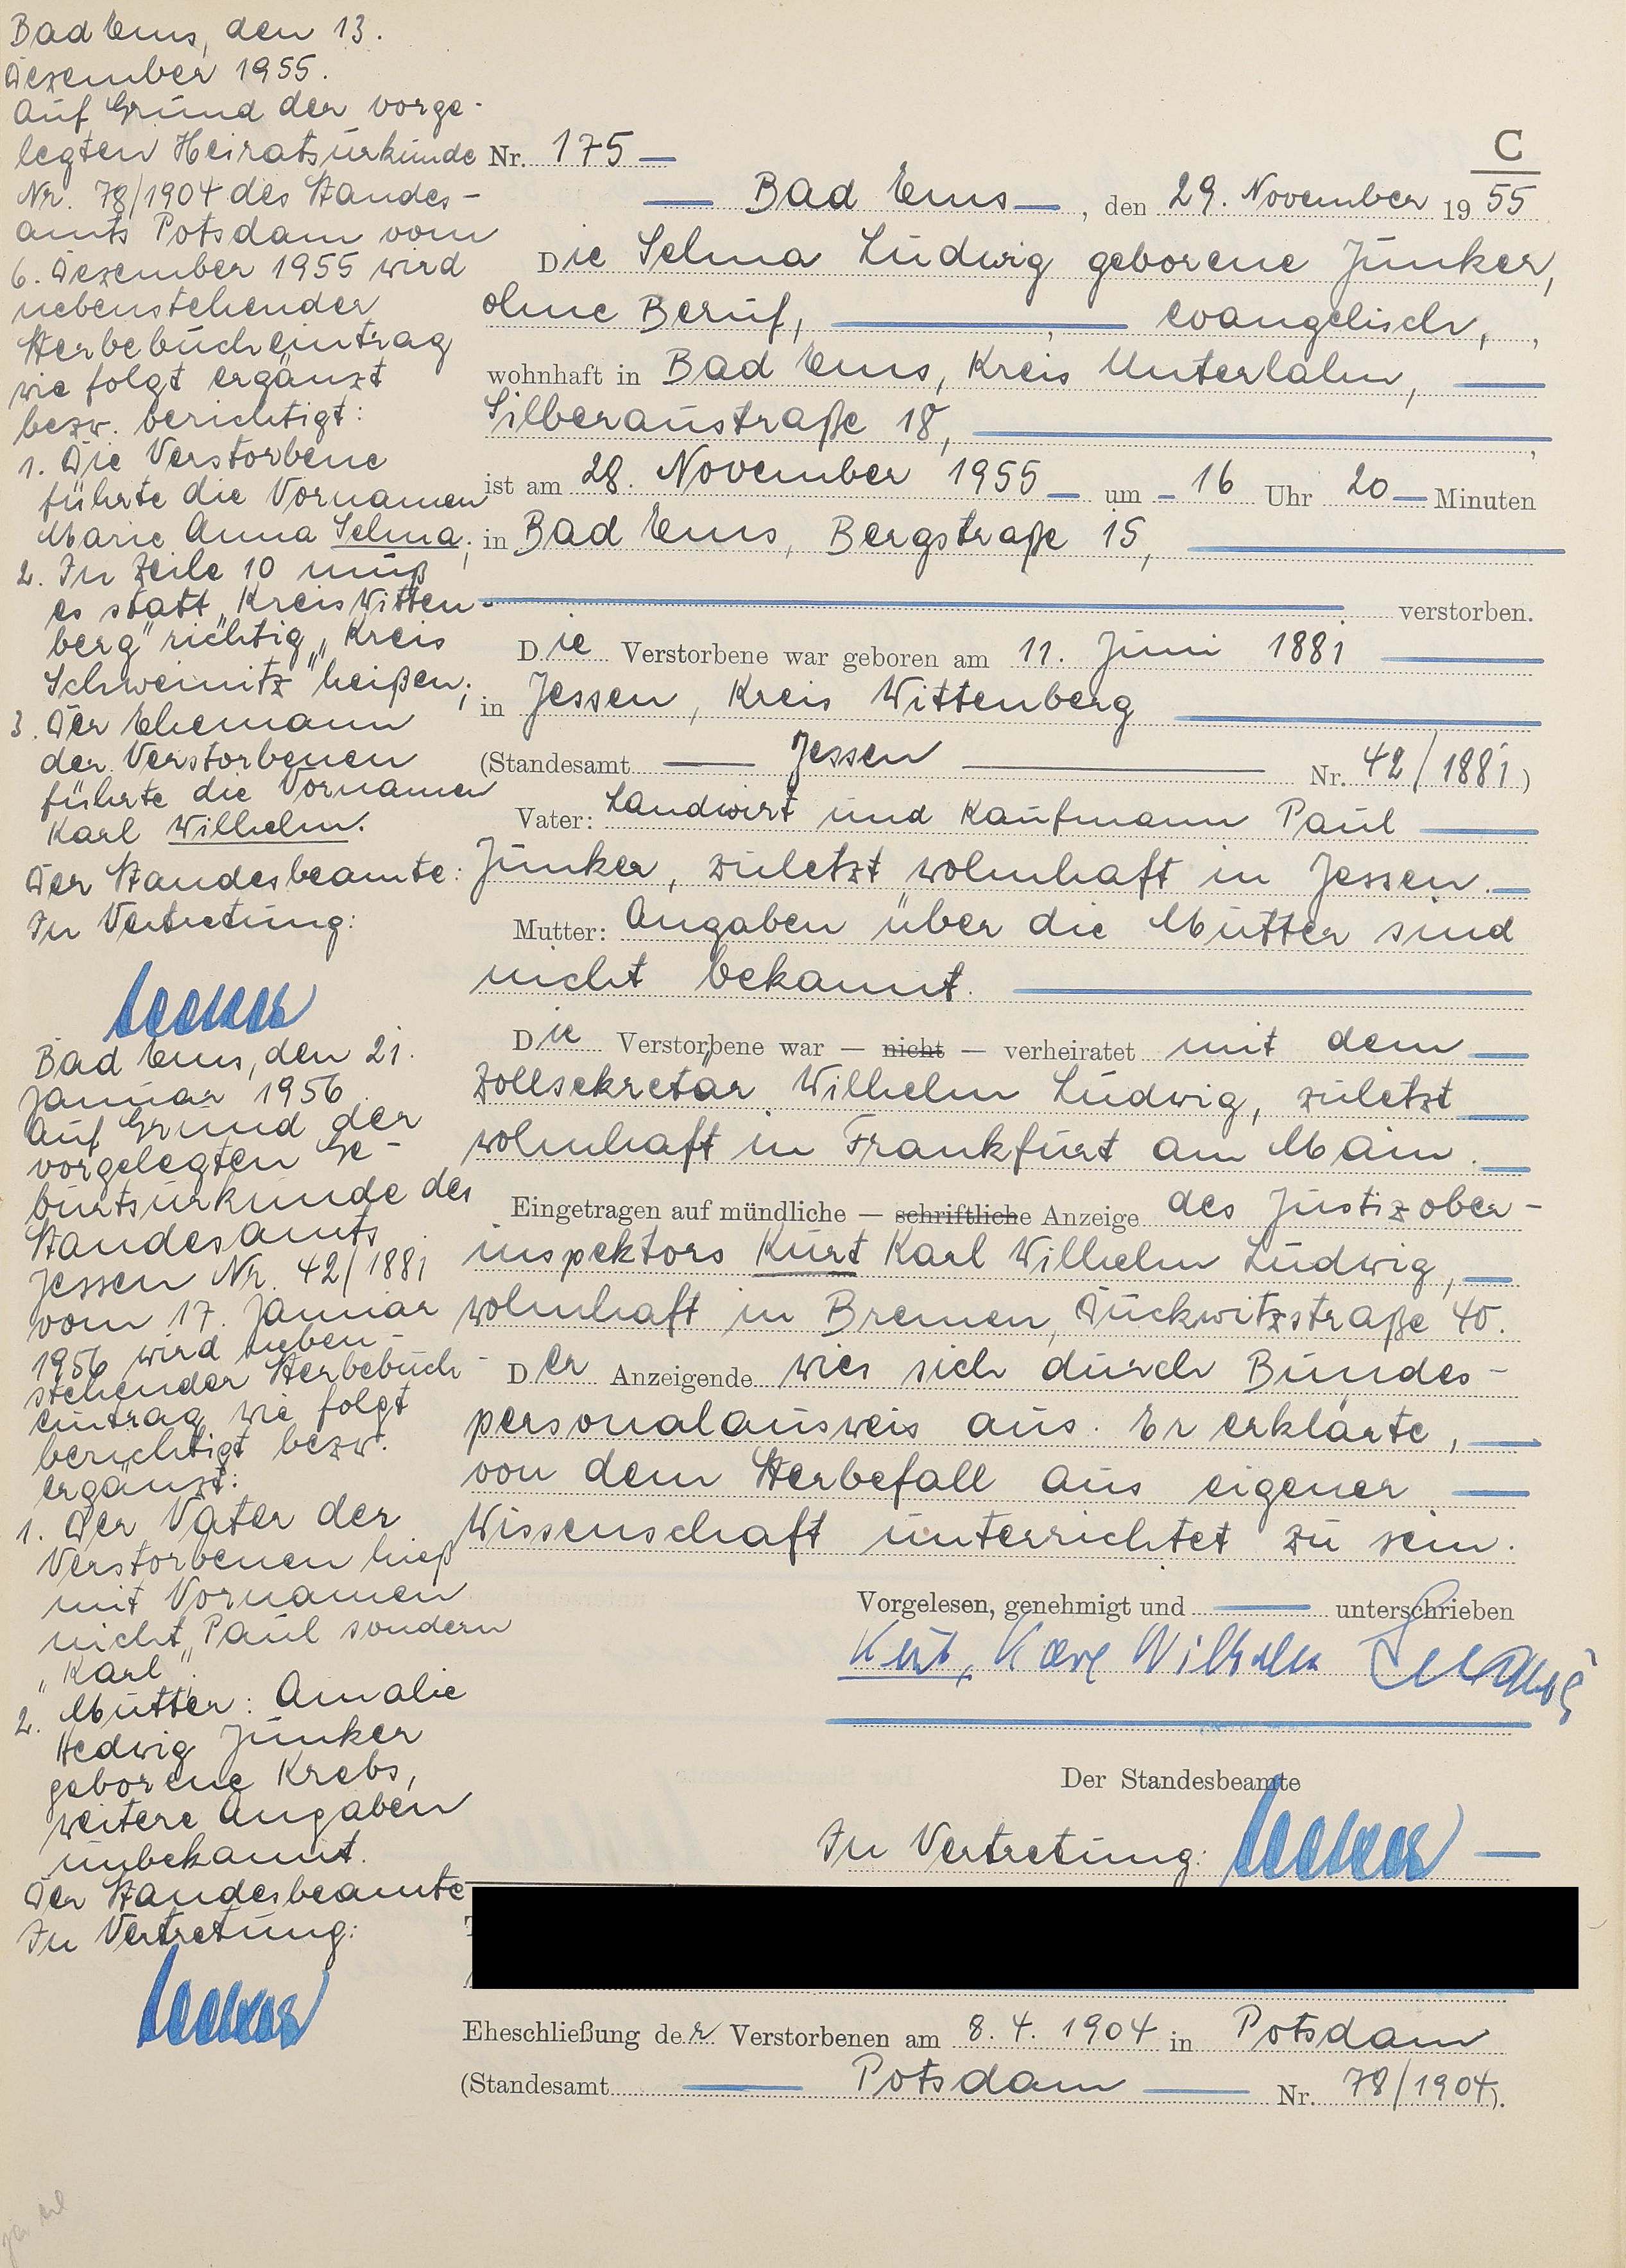 Bad Ems, den 13.
Dezember 1955.
Auf Grund der vorge-
legten Heiratsurkunde
Nr. 78/1904 des Standes-
amts Potsdam vom
6. Dezember 1955 wird
nebenstehender
Sterbebucheintrag
wie folgt ergänzt
bezw. berichtigt:
1. Die Verstorbene
führte die Vornamen
Marie Anna Selma;
2. In Zeile 10 muß
es statt „Kreis Witten-
berg" richtig „Kreis
Schweinitz" heißen;
3. Der Ehemann
der Verstorbenen
führte die Vornamen
Karl Wilhelm.
Der Standesbeamte:
In Vertretung:
Bad Ems, den 21.
Januar 1956
Auf Grund der
vorgelegten Ge-
burtsurkunde des
Standesamts
Jessen Nr. 42/1881
vom 17. Januar
1956 wird neben-
stehender Sterbebuch-
eintrag wie folgt
berichtigt bezw.
ergänzt:
1. Der Vater der
Verstorbenen hieß
mit Vornamen
nicht „Paul sondern
„Karl".
2. Mutter: Amalie
Hedwig Junker
geborene Krebs,
weitere Angaben
unbekannt.
Der Standesbeamte
In Vertretung:
C
Nr. 175
Bad Ems, den 29. November 1955
Die Selma Ludwig geborene Junker,
ohne Beruf, , evangelisch, ,
wohnhaft in Bad Ems, Kreis Unterlahn,
Silberaustraße 18,
ist am 28. November 1955 um 16 Uhr 20 Minuten
in Bad Ems, Bergstraße 15,
verstorben.
Die Verstorbene war geboren am 11. Juni 1881
in Jessen, Kreis Wittenberg
(Standesamt Jessen Nr. 42/1881)
Vater: Landwirt und Kaufmann Paul
Junker, zuletzt wohnhaft in Jessen.
Mutter: Angaben über die Mutter sind
nicht bekannt.
Die Verstorbene war — nicht — verheiratet mit dem
Zollsekretär Wilhelm Ludwig, zuletzt
wohnhaft in Frankfurt am Main.
Eingetragen auf mündliche — schriftliche Anzeige des Justizober-
inspektors Kurt Karl Wilhelm Ludwig,
wohnhaft in Bremen, Duckwitzstraße 40.
Der Anzeigende wies sich durch Bundes-
personalausweis aus. Er erklärte,
von dem Sterbefall aus eigener
Wissenschaft unterrichtet zu sein.
Vorgelesen, genehmigt und unterschrieben
Kurt, Karl Wilhelm Ludwig
Der Standesbeamte
In Vertretung:
Eheschließung der Verstorbenen am 8. 4. 1904 in Potsdam
(Standesamt Potsdam Nr. 78/1904).